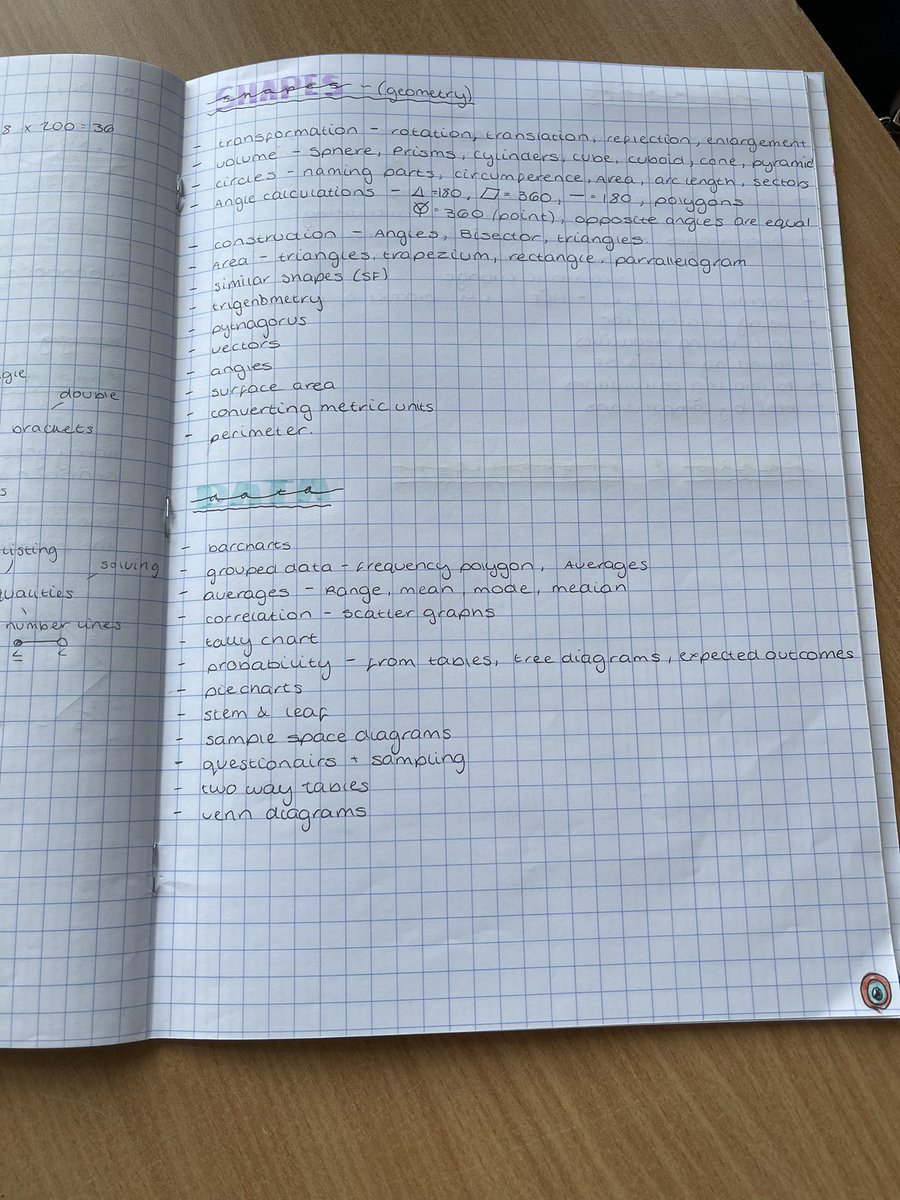 8 x 200 = 36
gie
double
brackets
s
listing
solving
qualities
number lines
≤ <
SHAPES
shapes - (geometry)
- transformation - rotation, translation, reflection, enlargement
- volume - sphere, Prisms, cylinders, cube, cuboid, cone, pyramid
- circles - naming parts, circumference, Area, arc length, sectors
- Angle calculations - △=180, ▱=360, —=180, polygons
=360 (point), opposite angles are equal
- construction - Angles, Bisector, triangles.
- Area - triangles, trapezium, rectangle, parrallelogram
- similar shapes (SF)
- trigenometry
- pythagorus
- vectors
- angles
- surface area
- converting metric units
- perimeter.
DATA
data
- barcharts
- grouped data - frequency polygon, Averages
- averages - Range, mean, mode, median
- correlation - scatter graphs
- tally chart
- probability - from tables, tree diagrams, expected outcomes
- piecharts
- stem & leaf
- sample space diagrams
- questionairs + sampling
- two way tables
- venn diagrams